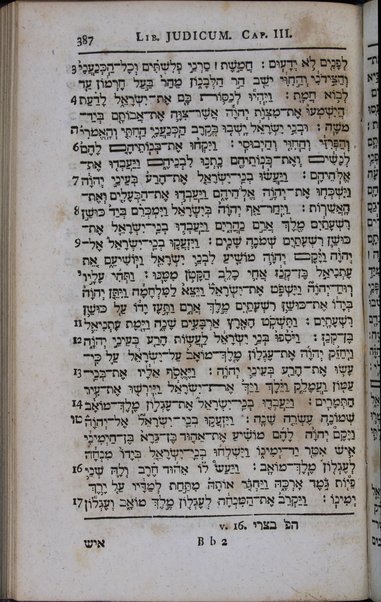 387 LIB. JUDICUM. CAP. III.
לְפָנִים לֹא יְדָעוּם : חֲמֵשֶׁת ׀ סַרְנֵי פְלִשְׁתִּים וְכָל־הַכְּנַעֲנִי 3
וְהַצִּידֹנִי וְהַחִוִּי יֹשֵׁב הַר הַלְּבָנוֹן מֵהַר בַּעַל חֶרְמוֹן עַד
לְבוֹא חֲמָת : וַיִּהְיוּ לְנַסּוֹת בָּם אֶת־יִשְׂרָאֵל לָדַעַת 4
הֲיִשְׁמְעוּ אֶת־מִצְוֺת יְהוָה אֲשֶׁר־צִוָּה אֶת־אֲבוֹתָם בְּיַד־
מֹשֶׁה : וּבְנֵי יִשְׂרָאֵל יָשְׁבוּ בְּקֶרֶב הַכְּנַעֲנִי הַחִתִּי וְהָאֱמֹרִי ה
וְהַפְּרִזִּי וְהַחִוִּי וְהַיְבוּסִי : וַיִּקְחוּ אֶת־בְּנוֹתֵיהֶם לָהֶם 6
לְנָשִׁים וְאֶת־בְּנוֹתֵיהֶם נָתְנוּ לִבְנֵיהֶם וַיַּעַבְדוּ אֶת־
אֱלֹהֵיהֶם : וַיַּעֲשׂוּ בְנֵי־יִשְׂרָאֵל אֶת־הָרַע בְּעֵינֵי יְהוָה 7
וַיִּשְׁכְּחוּ אֶת־יְהוָה אֱלֹהֵיהֶם וַיַּעַבְדוּ אֶת־הַבְּעָלִים וְאֶת־
הָאֲשֵׁרוֹת : וַיִּחַר־אַף יְהוָה בְּיִשְׂרָאֵל וַיִּמְכְּרֵם בְּיַד כּוּשַׁן 8
רִשְׁעָתַיִם מֶלֶךְ אֲרַם נַהֲרָיִם וַיַּעַבְדוּ בְנֵי־יִשְׂרָאֵל אֶת־
כּוּשַׁן רִשְׁעָתַיִם שְׁמֹנֶה שָׁנִים : וַיִּזְעֲקוּ בְנֵי־יִשְׂרָאֵל אֶל־ 9
יְהוָה וַיָּקֶם יְהוָה מוֹשִׁיעַ לִבְנֵי יִשְׂרָאֵל וַיּוֹשִׁיעֵם אֵת
עָתְנִיאֵל בֶּן־קְנַז אֲחִי כָלֵב הַקָּטֹן מִמֶּנּוּ : וַתְּהִי עָלָיו י
רוּחַ־יְהוָה וַיִּשְׁפֹּט אֶת־יִשְׂרָאֵל וַיֵּצֵא לַמִּלְחָמָה וַיִּתֵּן יְהוָה
בְּיָדוֹ אֶת־כּוּשַׁן רִשְׁעָתַיִם מֶלֶךְ אֲרָם וַתָּעָז יָדוֹ עַל כּוּשַׁן
רִשְׁעָתָיִם : וַתִּשְׁקֹט הָאָרֶץ אַרְבָּעִים שָׁנָה וַיָּמָת עָתְנִיאֵל 11
בֶּן־קְנַז : וַיֹּסִפוּ בְּנֵי יִשְׂרָאֵל לַעֲשׂוֹת הָרַע בְּעֵינֵי יְהוָה 12
וַיְחַזֵּק יְהוָה אֶת־עֶגְלוֹן מֶלֶךְ־מוֹאָב עַל־יִשְׂרָאֵל עַל כִּי־
עָשׂוּ אֶת־הָרַע בְּעֵינֵי יְהוָה : וַיֶּאֱסֹף אֵלָיו אֶת־בְּנֵי 13
עַמּוֹן וַעֲמָלֵק וַיֵּלֶךְ וַיַּךְ אֶת־יִשְׂרָאֵל וַיִּירְשׁוּ אֶת־עִיר
הַתְּמָרִים : וַיַּעַבְדוּ בְנֵי־יִשְׂרָאֵל אֶת־עֶגְלוֹן מֶלֶךְ־מוֹאָב 14
שְׁמוֹנֶה עֶשְׂרֵה שָׁנָה : וַיִּזְעֲקוּ בְנֵי־יִשְׂרָאֵל אֶל־יְהוָה טו
וַיָּקֶם יְהוָה לָהֶם מוֹשִׁיעַ אֶת־אֵהוּד בֶּן־גֵּרָא בֶּן־הַיְמִינִי
אִישׁ אִטֵּר יַד־יְמִינוֹ וַיִּשְׁלְחוּ בְנֵי־יִשְׂרָאֵל בְּיָדוֹ מִנְחָה
לְעֶגְלוֹן מֶלֶךְ־מוֹאָב : וַיַּעַשׂ לוֹ אֵהוּד חֶרֶב וְלָהּ שְׁנֵי 16
פֵיוֹת גֹּמֶד אָרְכָּהּ וַיַּחְגֹּר אוֹתָהּ מִתַּחַת לְמַדָּיו עַל יֶרֶךְ
יְמִינוֹ : וַיַּקְרֵב אֶת־הַמִּנְחָה לְעֶגְלוֹן מֶלֶךְ מוֹאָב וְעֶגְלוֹן 17
v. 16. הפ׳ בצרי
B b 2 איש